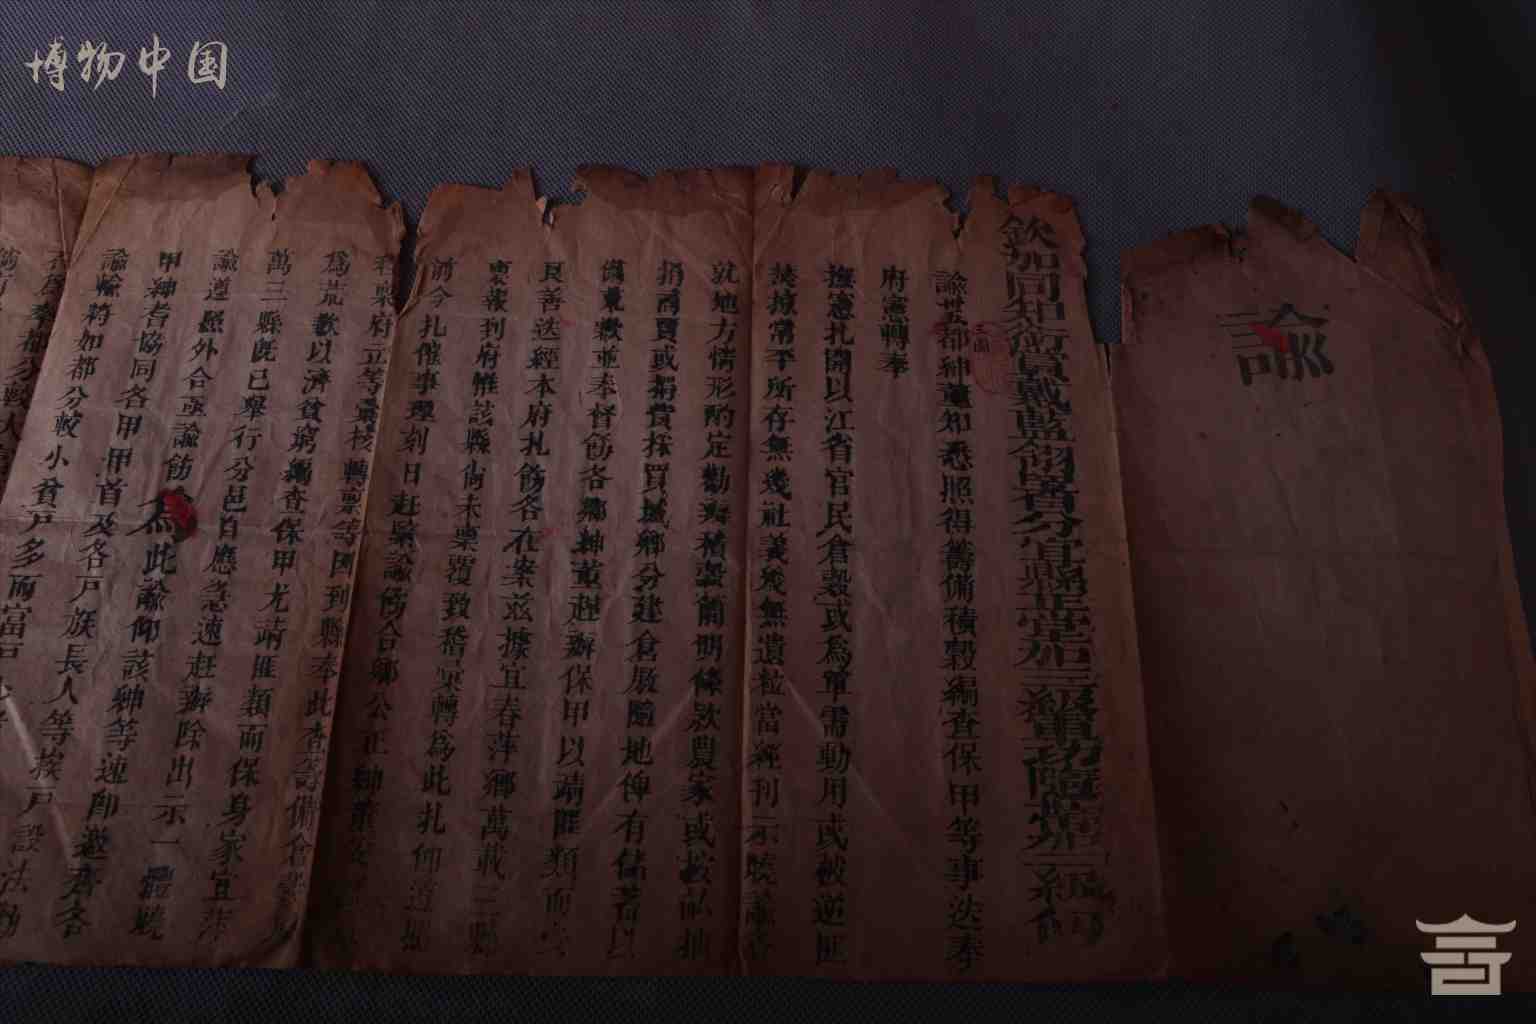 博物中国
諭
欽加同知銜賞戴藍翎署分宜縣正堂加三級軍功隨帶二級何
諭世五都紳董知悉照得籌備積穀編查保甲等事迭奉
三圖
府憲轉奉
撫憲札開以江省官民倉穀或為軍需動用或被逆匪
焚掠常平所存無幾社義幾無遺粒當經刊示曉諭
就地方情形酌定勸辦積穀簡明條款農家或按畝抽
捐商賈或捐貲採買城鄉分建倉廒隨地俾有儲蓄以
備荒歉並奉督飭各鄉紳董趕辦保甲以靖匪類而
良善迭經本府札飭各在案茲據宜春萍鄉萬載三縣
稟報到府惟該縣尚未稟覆致稽彙轉為此札仰遵照
前今札催事理刻日赶緊諭飭合鄉公正紳董
府立等彙核轉稟等因到縣奉此查籌備倉穀
為荒歉以濟貧窮編查保甲尤靖匪類而保身家宜萍
萬三縣既已舉行分邑自應急速赶辦除出示一體曉
諭遵照外合亟諭飭為此諭仰該紳等速即邀齊各
甲紳耆協同各甲甲首及各戶族長人等挨戶設法勸
諭輸將如都分較小貧戶多而富戶